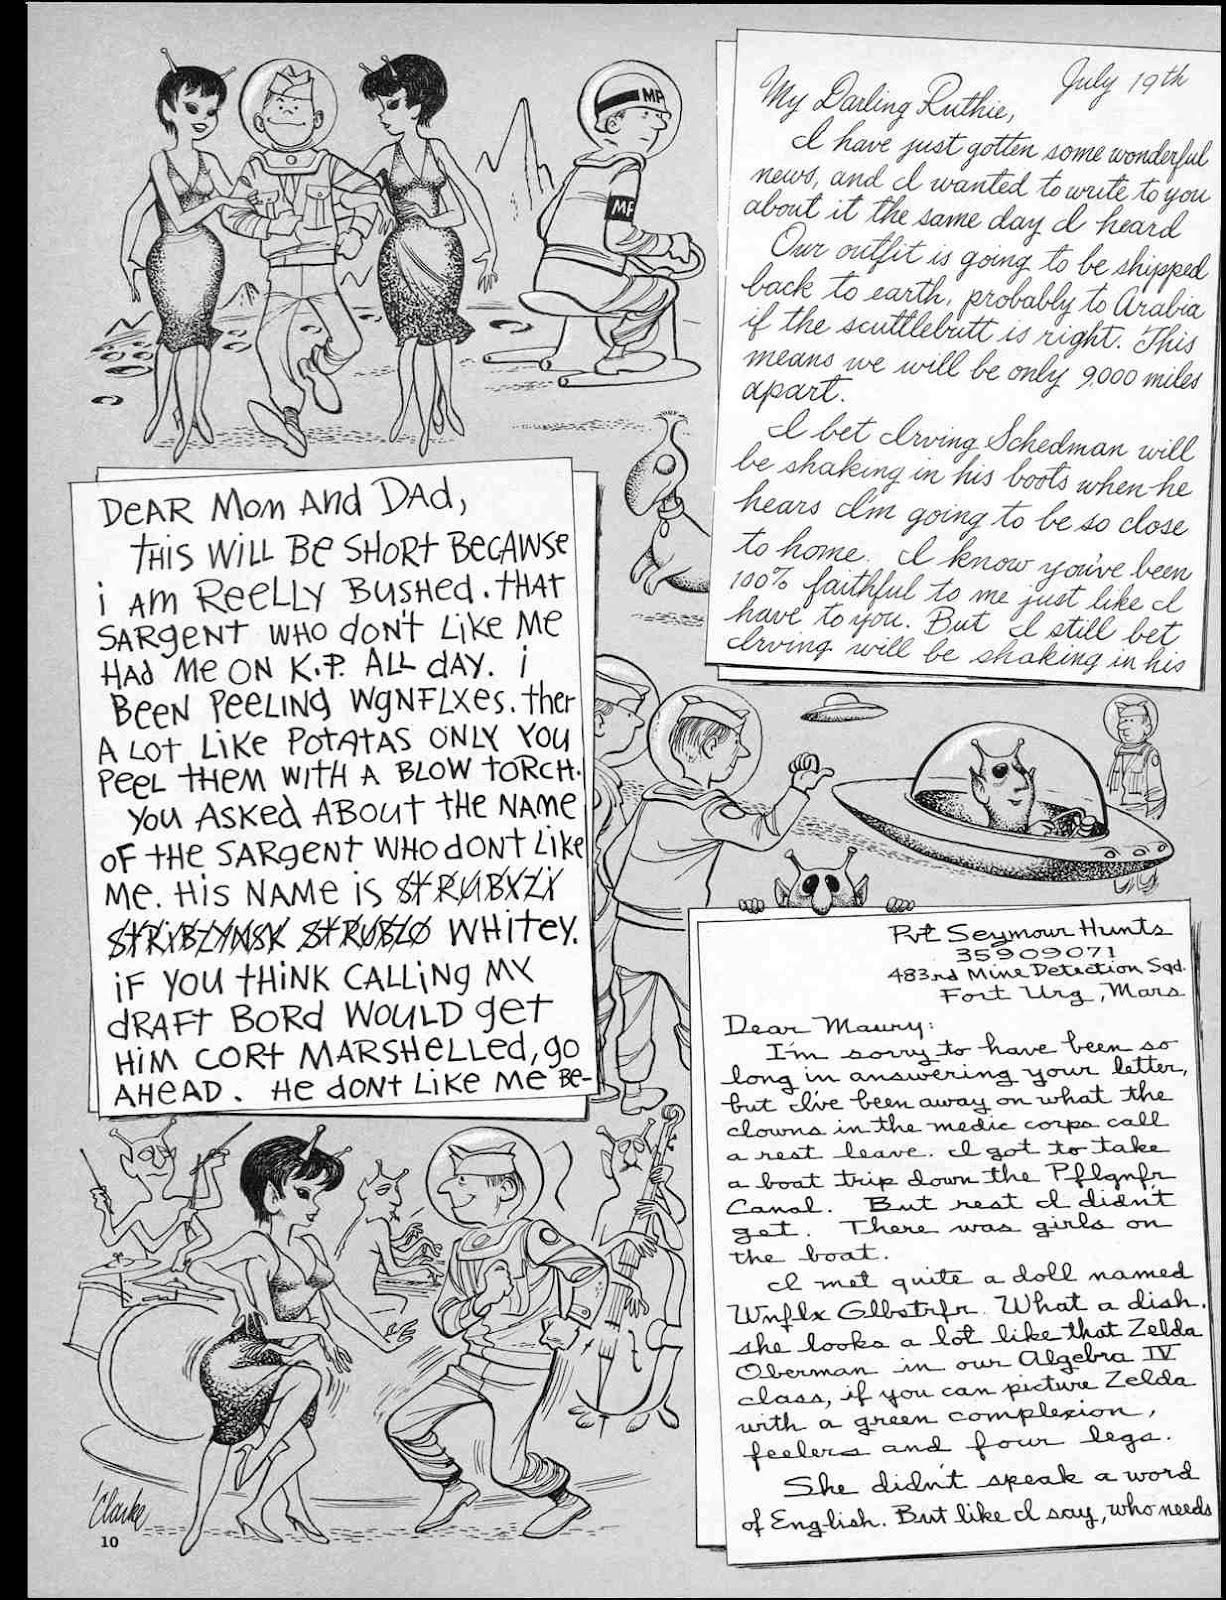 MP
MP
My Darling Ruthie,
July 19th
I have just gotten some wonderful
news, and I wanted to write to you
about it the same day I heard
Our outfit is going to be shipped
back to earth, probably to Arabia
if the scuttlebutt is right. This
means we will be only 9,000 miles
apart.
I bet Irving Schedman will
be shaking in his boots when he
hears I'm going to be so close
to home. I know you've been
100% faithful to me just like I
have to you. But I still bet
Irving will be shaking in his
DeAR Mom And DAd,
tHiS WiLL Be SHORt BeCAWSe
i AM ReeLLY BUSHed. tHAt
SARgeNt WHO doN't LiKe Me
HAd Me ON K.P. ALL dAY. i
BeeN PeeLiNg WgNFLXes. tHer
A LOt LiKe POtAtAS ONLY YOU
PeeL tHeM WitH A BLOW tORCH.
YOU ASKed ABOUt tHe NAMe
OF tHe SARgeNt WHO dONt LiKe
Me. HiS NAMe iS StRUBXZX
StRiBZYNSK StRUBZO WHiteY.
iF YOU tHiNK CALLiNg MY
dRAFt BORd WOULd get
HiM CORt MARSHeLLed, go
AHeAd. He dONt LiKe Me Be-
Pvt Seymour Hunts
35909071
483rd Mine Detection Sqd.
Fort Urg, Mars
Dear Maury:
I'm sorry to have been so
long in answering your letter,
but I've been away on what the
clowns in the medic corps call
a rest leave. I got to take
a boat trip down the Pflgnfr
Canal. But rest I didn't
get. There was girls on
the boat.
I met quite a doll named
Wnflx Glbstrfr. What a dish.
she looks a lot like that Zelda
Oberman in our Algebra IV
class, if you can picture Zelda
with a green complexion,
feelers and four legs.
She didn't speak a word
of English. But like I say, who needs
Clarke
10